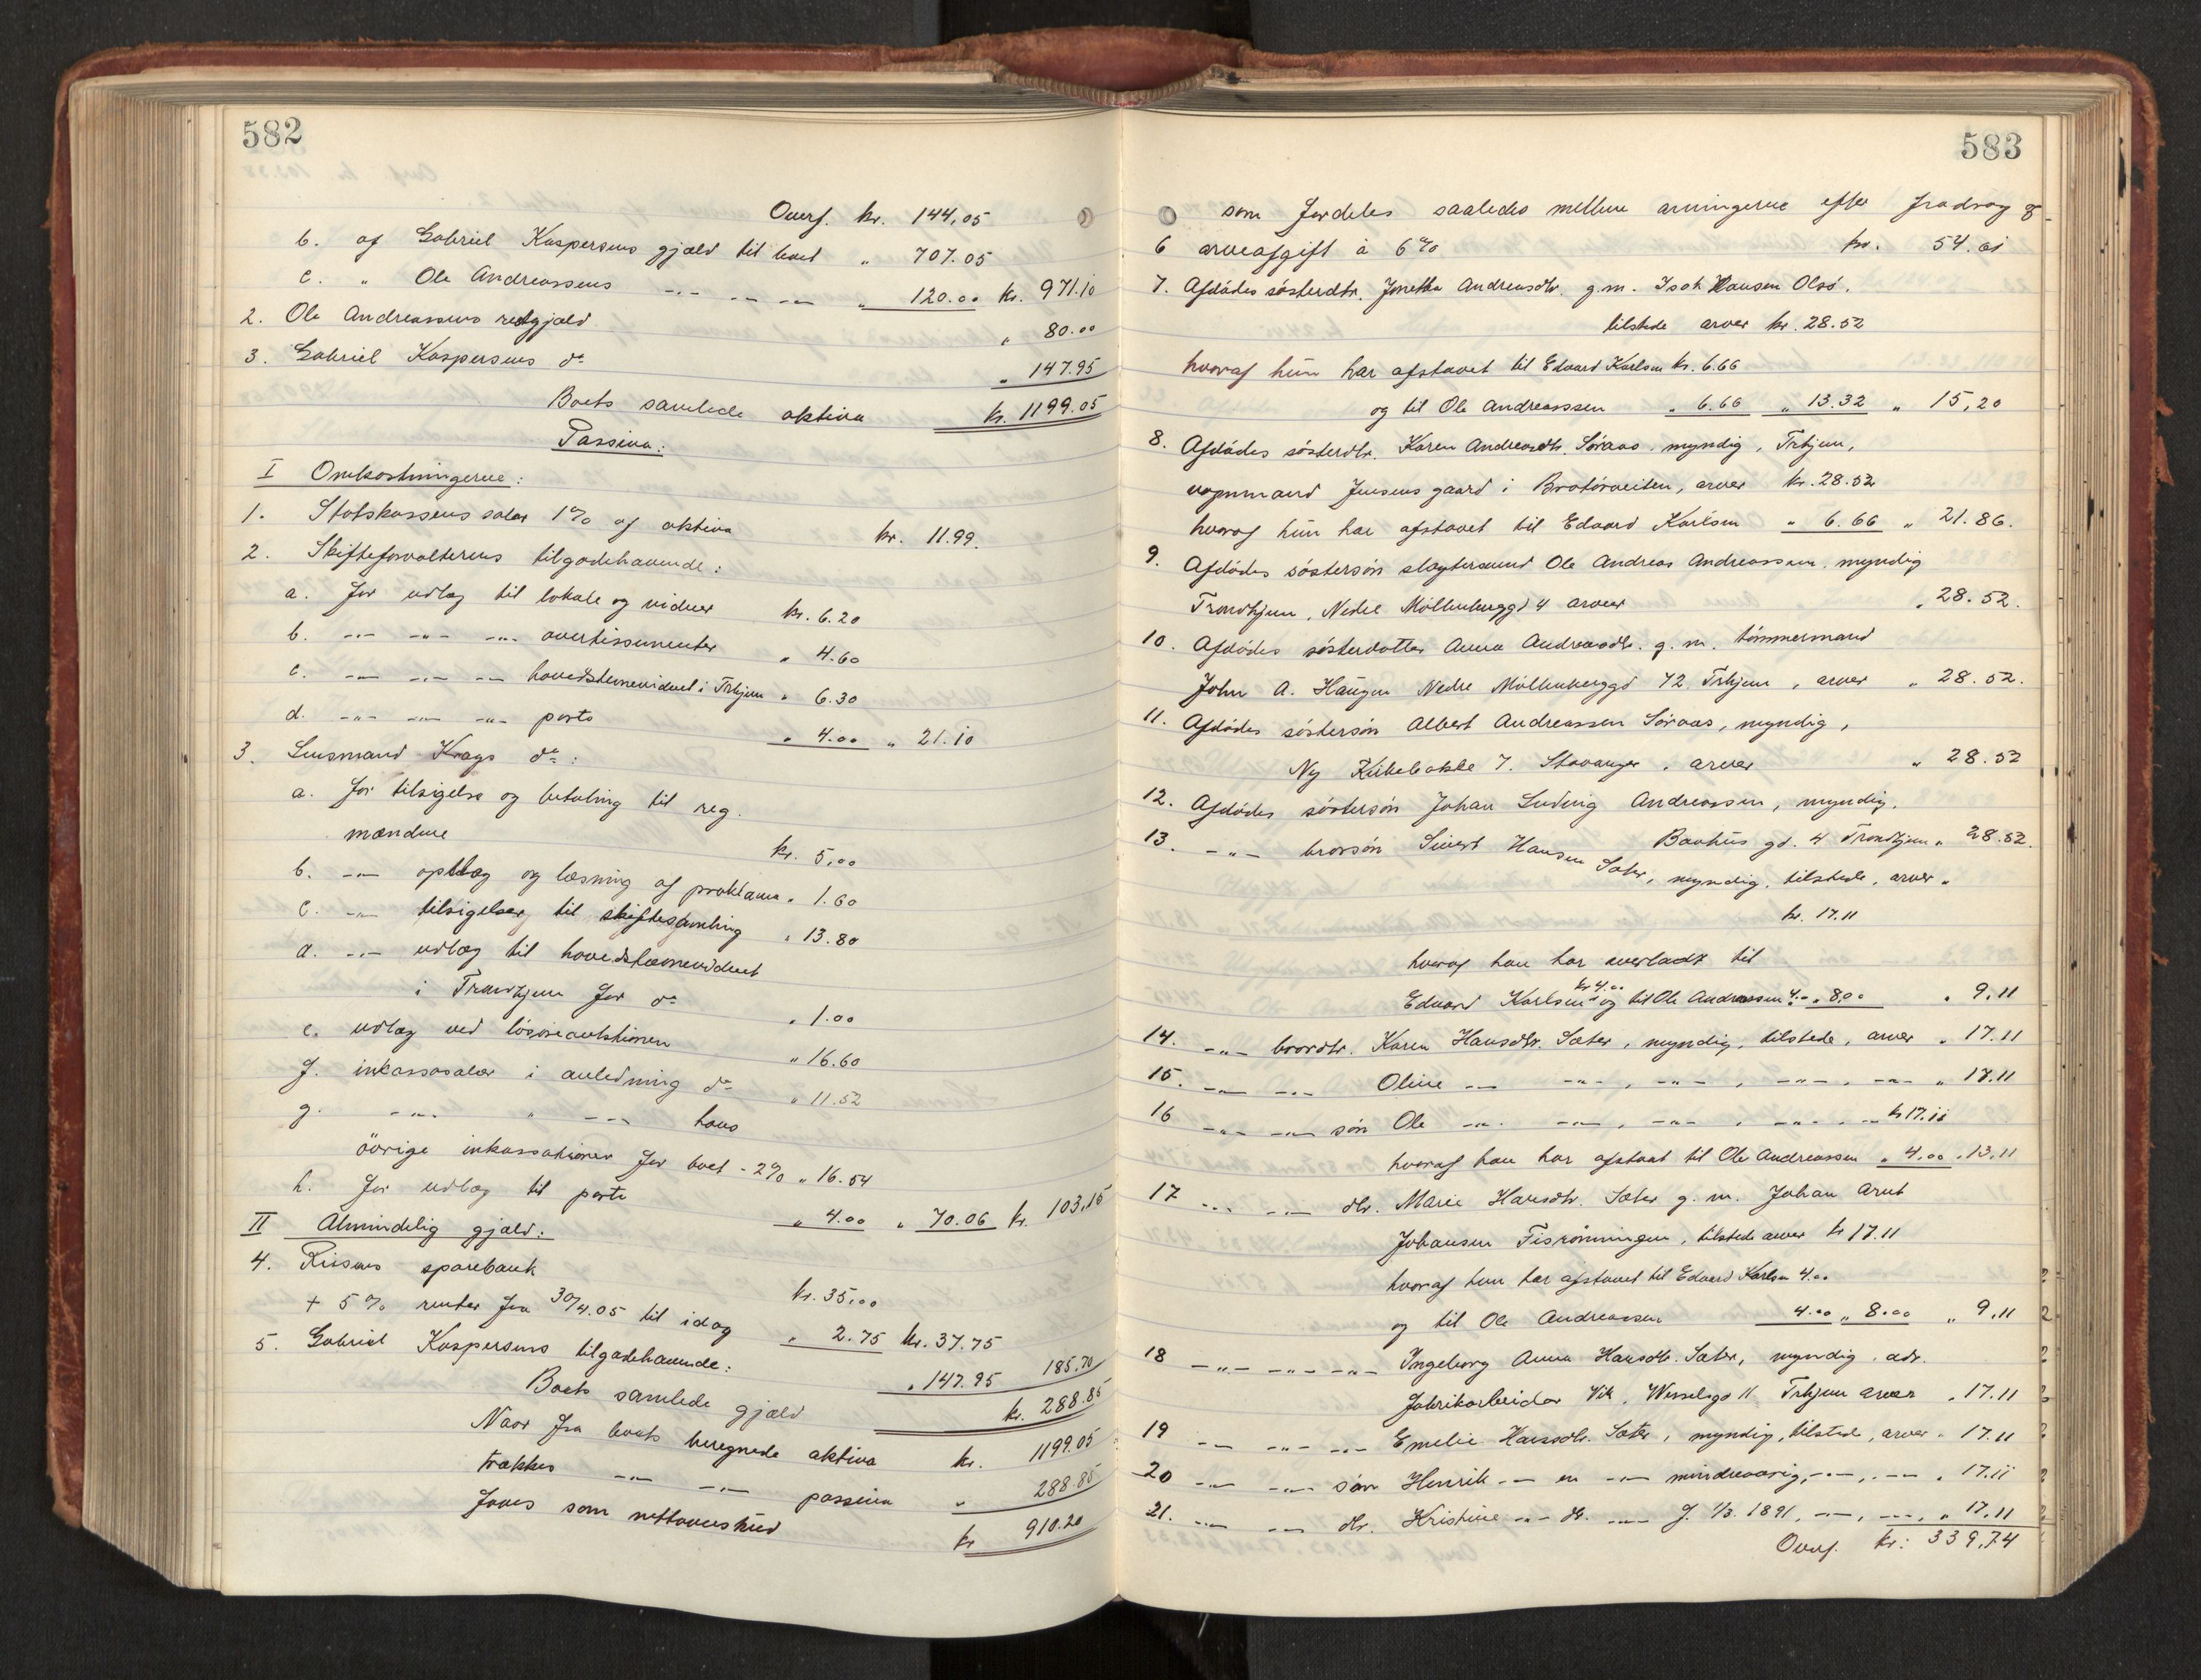 582
Overf. kr. 144,05
b. af Gabriel Kaspersens gjæld til boet " 707.05
c. " Ole Andreassens -"- -"- -"- " 120.00 kr. 971.10
2. Ole Andreassens restgjæld " 80.00
3. Gabriel Kaspersens do " 147.95
Boets samlede aktiva kr. 1199.05
Passiva:
I Omkostningerne:
1. Statskassens salær 1% af aktiva kr. 11.99.
2. Skifteforvalterens tilgodehavende:
a. for udlæg til lokale og vidner kr. 6.20
b. -"- -"- -"- avertissementer " 4.60
c. -"- -"- -"- hovedstævnevidnet i Trhjem " 6.30
d. -"- -"- -"- porto " 4.00 " 21.10
3. Lensmand Krags do:
a. for tilsigelse og betaling til reg.
mændene kr. 5,00
b. -"- opslag og læsning af proklama " 1.60
c. -"- tilsigelser til skiftesamling " 13.80
d. -"- udlæg til hovedstævnevidnet
i Trondhjem for do " 1.00
e. udlæg ved løsøreauktionen " 16.60
f. inkassosalær i anledning do " 11.52
g. -"- " -"- hans
øvrige inkassationer for boet - 2% " 16.54
h. for udlæg til porto " 4.00 " 70.06 kr. 103,15
II Almindelig gjæld:
4. Rissens sparebank kr. 35,00
+ 5% renter fra 30/4.05 til idag " 2.75 kr. 37.75
5. Gabriel Kaspersens tilgodehavende: " 147.95 185.70
Boets samlede gjæld kr. 288.85
Naar fra boets beregnede aktiva kr. 1199.05
trækkes -"- -"- passiva " 288.85
faaes som nettooverskud kr 910.20
583
som fordeles saaledes mellem arvingerne efter fradrag af
6 arveafgift à 6% kr. 54.61
7. Afdødes søsterdtr. Andreasdtr. g.m. Isak Hansen Olsø.
tilstede arver kr. 28.52
hvoraf hun har afstaaet til Edvard Karlsen kr. 6.66
og til Ole Andreassen " 6.66 " 13.32 " 15,20
8. Afdødes søsterdtr. Karen Andreasdtr. Søraas, myndig, Trhjem,
vognmand Jensens gaard i Bratørveiten, arver kr. 28.52
hvoraf hun har afstaaet til Edvard Karlsen " 6.66 " 21.86.
9. Afdødes søstersøn slagtersvend Ole Andreas Andreassen, myndig
Trondhjem, Nedre Møllenberggd 4 arver " 28.52.
10. Afdødes søsterdatter Anna Andreasdtr. g.m. tømmermand
John A. Haugen Nedre Møllenberggd 72 Trhjem, arver " 28.52.
11. Afdødes søstersøn Albert Andreassen Søraas, myndig,
Ny Kirkebakke 7. Stavanger, arver " 28.52
12. Afdødes søstersøn Johan Ludvig Andreassen, myndig.
Bakhus gd. 4 Trondhjem " 28.52.
13. -"- brorsøn Sivert Hansen Sæter, myndig, tilstede, arver "
kr. 17.11
hvoraf han har overladt til
Edvard Karlsen kr 4.00 og til Ole Andreassen 4.00 " 8,00 " 9,11
14. -"- brordtr. Karen Hansdtr. Sæter, myndig, tilstede, arver " 17.11
15. -"- -"- Oline -"- -"-, -"-, -"-, -"- " 17.11
16 -"- -"- søn Ole -"- -"-, -"-, -"-, -"- kr 17.11
hvoraf han har afstaat til Ole Andreassen " 4.00 " 13,11
17 -"- -"- dtr. Marie Hansdtr. Sæter g.m. Johan Arnt
Johansen Fisrønningen, tilstede arver kr 17.11
hvoraf hun har afstaaet til Edvard Karlsen 4.00
og til Ole Andreassen 4.00 " 8.00 " 9,11
18 -"- -"- -"- Ingeborg Anna Hansdtr. Sæter, myndig, adr.
fabrikarbeider Vik, Wesselsgd 11 Trhjem arver " 17.11
19 -"- -"- -"- Emelie Hansdtr. Sæter, myndig, tilstede, arver " 17.11
20 -"- -"- søn Henrik -"- en -"- mindreaarig, -"-, -"- " 17.11
21. -"- -"- dtr. Kristine -"- dr. -"- f. 1/3. 1891, -"-, -"-, " 17.11
Overf. kr: 339,74